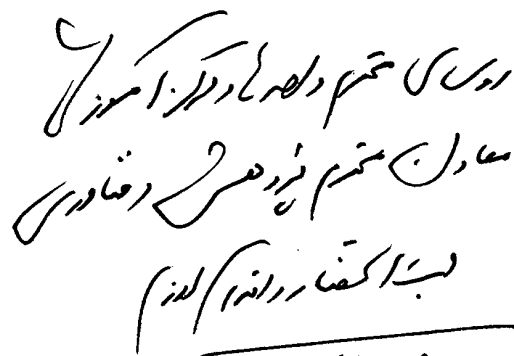 روسای محترم دانشکده ها و مراکز آموزشی
معاون محترم پژوهشی و فناوری
جهت استحضار و اقدام لازم